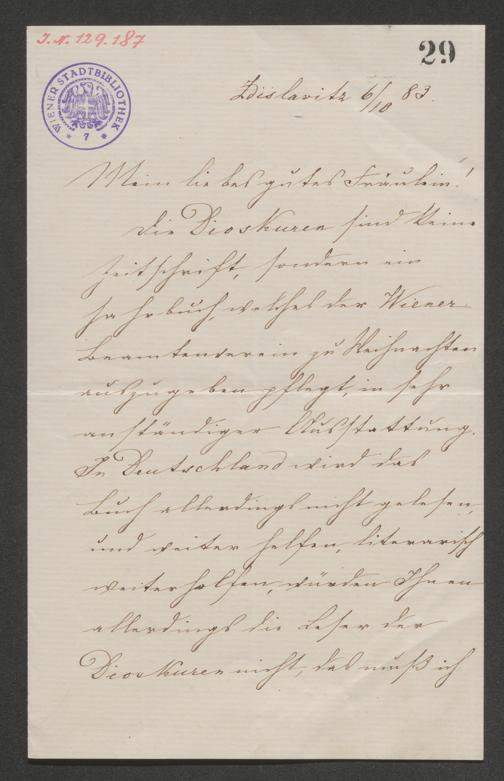 I.N. 129.187
29
WIENER STADTBIBLIOTHEK
* 7 *
Zdislavitz 6/10 83.
Mein liebes gutes Fräulein!
Die Dioskuren sind keine
Zeitschrift, sondern ein
Jahrbuch, welches der Wiener
Beamtenverein zu Weihnachten
auszugeben pflegt, in sehr
anständiger Ausstattung.
In Deutschland wird das
Buch allerdings nicht gelesen,
und weiter helfen, literarisch
weiterhelfen, würden Ihnen
allerdings die Leser der
Dioskuren nicht, das muß ich